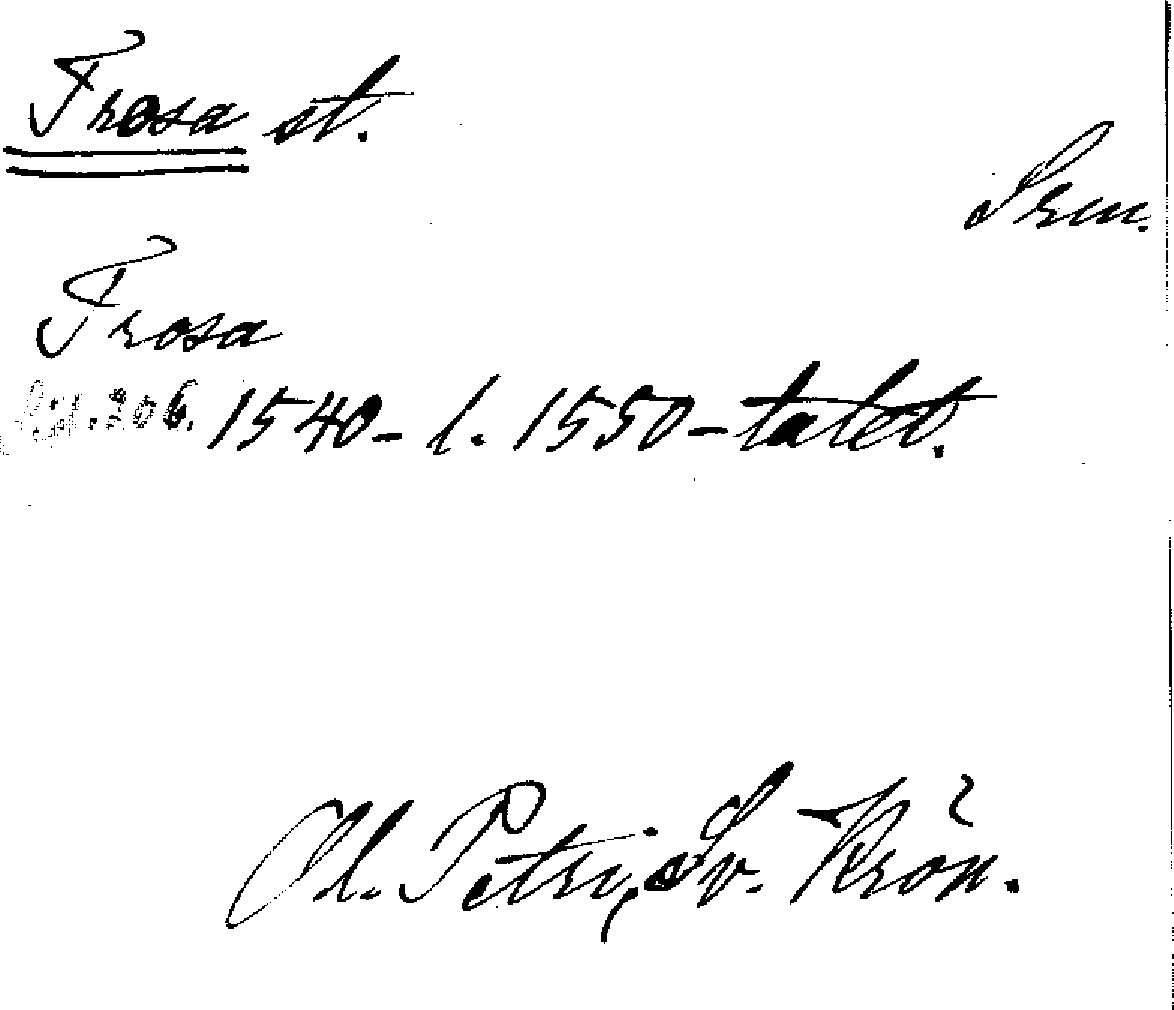 Trosa st.
Srm.
Trosa
s. 206. 1540- l. 1550-talet.
Ol. Petri, Sv. Krön.